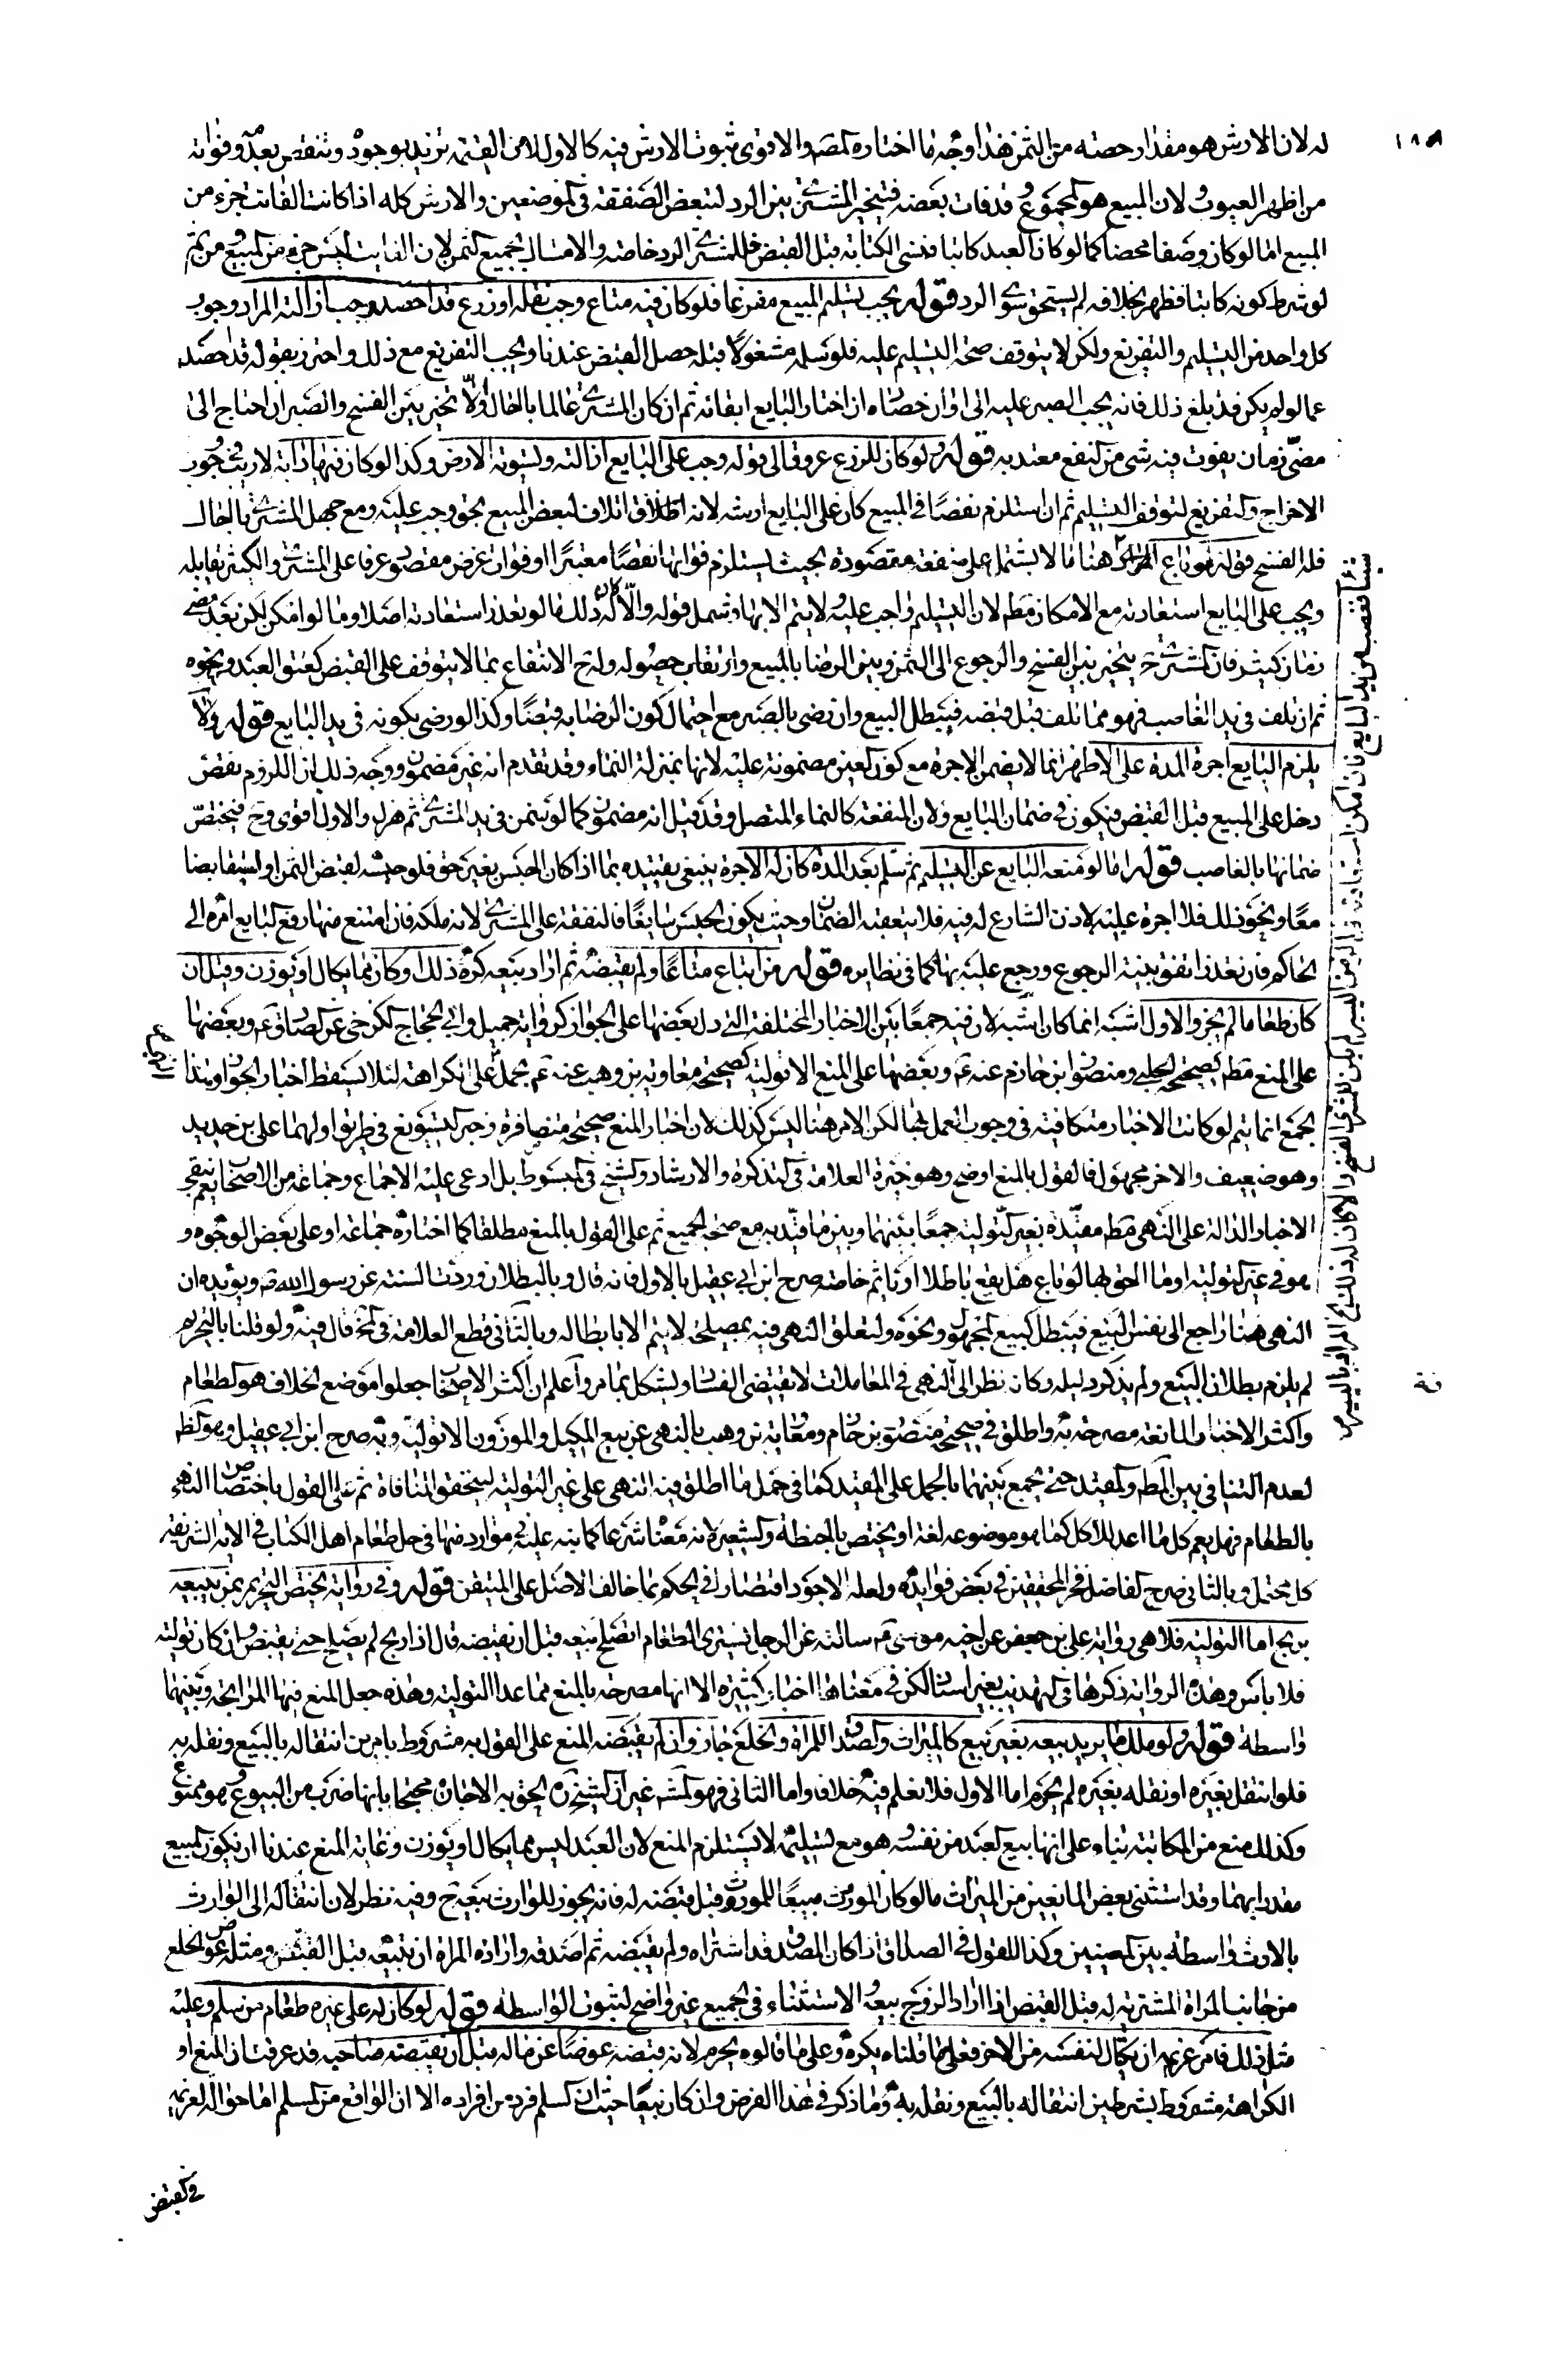 له لان الارش هو مقدار حصته من الثمن هذا وجه ما اختاره المصـ والاقوى ثبوت الارش فيه كالاول لان القيمة تزيد بوجوده وتنقص بعدمه وفواته
من اظهر العيوب ولان المبيع هو المجموع وقد فات بعضه فيتخير المشترى بين الرد لتبعض الصفقة فى الموضعين والارش كله اذا كانت الفائت جزء من
المبيع اما لو كان وصفا محضا كما لو كان العبد كاتبا فنسى الكتابة قبل القبض فللمشترى الرد خاصة والامساك بجميع الثمن لان الفايت ليس جزء من المبيع ومن ثم
لو شرط كونه كاتبا فظهر بخلافه لم يستحق سوى الرد قوله يجب تسليم المبيع مفرغا فلو كان فيه متاع وجب نقله او زرع قد احصد وجب ازالته المراد وجوب
كل واحد من التسليم والتفريغ ولكن لا يتوقف صحة التسليم عليه فلو سلمه مشغولا قبله حصل القبض عندنا ويجب التفريغ مع ذلك واحترز بقوله قد احصد
عما لو لم يكن قد بلغ ذلك فانه يجب الصبر عليه الى اوان حصاده ان اختار البايع ابقائه ثم ان كان المشترى عالما بالحال والا تخير بين الفسخ والصبر ان احتاج الى
مضى زمان يفوت فيه شى من النفع معتد به قوله ولو كان للزرع عروق الى قوله وجب على البايع ازالته وتسوية الارض وكذا لو كان فيها دابة لا ريب فى وجوب
الاخراج والتفريغ لتوقف التسليم ثم ان استلزم نقصا فى المبيع كان على البايع ارشه لانه اتلاف لبعض المبيع بحق وجب عليه ومع جهل المشترى بالحال
فله الفسخ قوله لو باع هنا ما لا يشتمل على منفعة مقصودة بحيث يستلزم فواتها نقصا معتبرا او فوات غرض مقصود عرفا على المشترى والكثير يقابله
ويجب على البايع استفادته مع الامكان مطم لان التسليم واجب عليه ولا يتم الا بها وشمل قوله والا كان له ذلك ما لو تعذر استفادته اصلا وما لو امكن لكن بعد مضى
زمان كثير فان المشترى ح يتخير بين الفسخ والرجوع الى الثمن وبين الرضا بالمبيع وارتقاب حصوله وله ح الانتفاع بما لا يتوقف على القبض كعتق العبد ونحوه
ثم ان تلف فى يد الغاصب فهو مما تلف قبل قبضه فيبطل البيع وان رضى بالصبر مع احتمال كون الرضا به قبضا وكذا لو رضى بكونه فى يد البايع قوله ولا
يلزم البايع اجرة المدة على الاظهر انما لا يضمن الاجرة مع كون العين مضمونة عليه لانها بمنزلة النماء وقد تقدم انه غير مضمون ووجه ذلك ان اللزوم نقص
دخل على المبيع قبل القبض فيكون فى ضمان البايع ولان المنفعة كالنماء المتصل وقد قيل انه مضمون كما لو سمن فى يد المشترى ثم هزل والاول اقوى وح فيختص
ضمانها بالغاصب قوله اما لو منعه البايع عن التسليم ثم سلم بعد المدة كان له الاجرة ينبغى تقييده بما اذا كان الحبس بغير حق فلو حبسه لقبض الثمن او ليتقابضا
معا ونحو ذلك فلا اجرة عليه لاذن الشارع له فيه فلا يتعقبه الضمان وحيث يكون الحبس سايغا فالنفقة على المشترى لانه ملكه فان امتنع منها رفع البايع امره الى
الحاكم فان تعذر انفق بنية الرجوع ورجع عليه بها كما فى نظايره قوله من ابتاع متاعا ولم يقبضه ثم اراد بيعه كره ذلك وكان مما يكال او يوزن وقيل ان
كان طعاما لم يجز والاول اشبه انما كان اشبه لان فيه جمعا بين الاخبار المختلفة التى دل بعضها على الجواز كرواية جميل وابى الحجاج الكرخى عن الصادق ع وبعضها
على المنع مطم كصحيحة الحلبى ومنصور ابن حازم عنه ع وبعضها على المنع الا تولية كصحيحة معاوية بن وهب عنه ع بحمل على الكراهة لئلا يسقط اخبار الجواز وهذا
الجمع انما يتم لو كانت الاخبار متكافية فى وجوب العمل بها لكن الامر هنا ليس كذلك لان اخبار المنع صحيحة متضافرة وخبر التسويغ فى طريق اولهما على بن حديد
وهو ضعيف والاخر مجهول فالقول بالمنع اوضح وهو خيرة العلامة فى التذكرة والارشاد والشيخ فى المبسوط بل ادعى عليه الاجماع وجماعة من الاصحاب نعم تبقى
الاخبار الدالة على النهى مطم مقيدة بغير التولية جمعا بينهما وبين ما قيد به مع صحة الجميع ثم على القول بالمنع مطلقا كما اختاره جماعة او على بعض الوجوه و
هو فى غير التولية او ما الحق بها لو باع هل يقع باطلا او ياثم خاصة صرح ابن ابى عقيل بالاول فانه قال وبالبطلان وردت السنة عن رسول الله ص ويؤيده ان
النهى هنا راجع الى نفس البيع فيبطل كبيع المجهول ونحوه ولتعلق النهى فيه بمصلحة لا يتم الا بابطاله وبالثانى قطع العلامة فى المخ قال فيه ولو قلنا بالتحريم
لم يلزم بطلان البيع ولم يذكر دليله وكان نظر الى النهى فى المعاملات لا يقتضى الفساد ويشكل بما مر واعلم ان اكثر الاصحاب جعلوا موضع الخلاف هو الطعام
واكثر الاخبار المانعة مصرحة به واطلق فى صحيحة منصور بن حازم ومعاوية بن وهب بالنهى عن بيع المكيل والموزون الا تولية وبه صرح ابن ابى عقيل وهو الظ
لعدم التنافى بين المطم والمقيد حتى يجمع بينهما بالحمل على المقيد كما فى حمل ما اطلق فيه النهى على غير التولية ليتحقق المنافاة ثم على القول باختصاص النهى
بالطعام فهل يعم كل ما اعد للاكل كما هو موضوعه لغة او يختص بالحنطة والشعير لانه معناه شرعا كما نبه عليه فى موارد منها فى حل طعام اهل الكتاب فى الاية الشريفة
كل محتمل وبالثانى صرح الفاضل فخر المحققين فى بعض فوايده ولعله الاجود اقتصارا فى الحكم بما خالف الاصل على المتيقن قوله وفى رواية يختص التحريم بمن يبيعه
بربح اما التولية فلا هى رواية على بن جعفر عن اخيه موسى ع سالته عن الرجل يشترى الطعام ايصلح بيعه قبل ان يقبضه قال اذا ربح لم يصلح حتى يقبض وان كان تولية
فلا باس وهذه الرواية ذكرها فى التهذيب بغير اسناد لكن فى معناها اخبار كثيرة الا انها مصرحة بالمنع مما عدا التولية وهذه جعل المنع فيها المرابحة وبينهما
واسطة قوله ولو ملك ما يريد بيعه بغير بيع كالميراث والصداق للمراة والخلع جاز وان لم يقبضه المنع على القول به مشروط بامرين انتقاله بالبيع ونقله به
فلو انتقل بغيره او نقله بغيره لم يحرم اما الاول فلا نعلم فيه خلافا واما الثانى فهو المشهـ غير ان الشيخ ره الحق به الاجارة محتجا بانها ضرب من البيوع وهو ممنوع
وكذلك منع من المكاتبة بناء على انها بيع العبد من نفسه وهو مع تسليمه لا يستلزم المنع لان العبد ليس مما يكال او يوزن وغاية المنع عندنا ان يكون المبيع
مقدرا بهما وقد استثنى بعض المانعين من الميراث ما لو كان المورث مبيعا للمورث وقبل قبضه له فانه يجوز للوارث بيعه ح وفيه نظر لان انتقاله الى الوارث
بالارث واسطة بين البيعين وكذا القول فى الصداق اذا كان المصدق قد اشتراه ولم يقبضه ثم اصدقه وارادة المراة ان تبيعه قبل القبض ومثله عوض الخلع
من جانب المراة المشترية له قبل القبض اذا اراد الزوج بيعه والاستثناء فى الجميع غير واضح لثبوت الواسطة قوله لو كان له على غيره طعام من سلم وعليه
مثل ذلك فامر غريمه ان يكتال لنفسه من الاخر فعلى ما قلناه يكره وعلى ما قالوه يحرم لانه قبضه عوضا عن ماله قبل ان يقبضه صاحبه قد عرفت ان المنع او
الكراهة مشروط بشرطين انتقاله بالبيع ونقله به وما ذكر فى هذا الفرض وان كان بيعا حيث ان السلم فرد من افراده الا ان الواقع من المسلم اما حوالة لغريمه
فى القبض